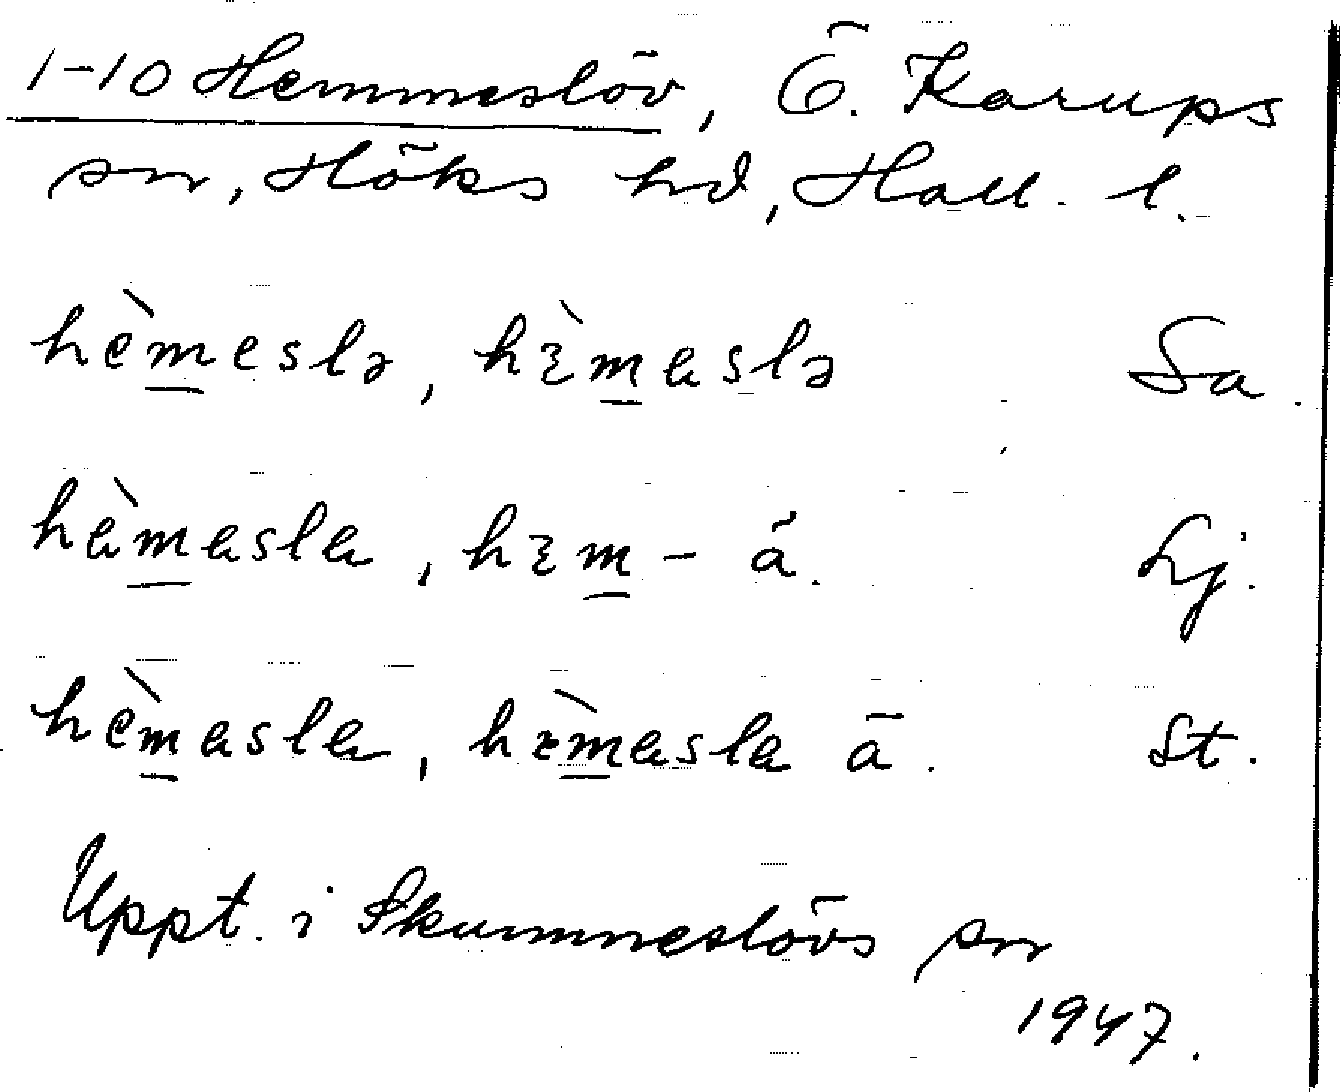 1-10 Hemmeslöv, Ö. Karups
sn, Höks hd, Hall. l.
hèmeslə, hɛ̀maslə Sa.
hàmasla, hɛm - ā. Lj.
hèmasla, hɛ̀masla ā. St.
Uppt. i Skummeslövs sn
1947.